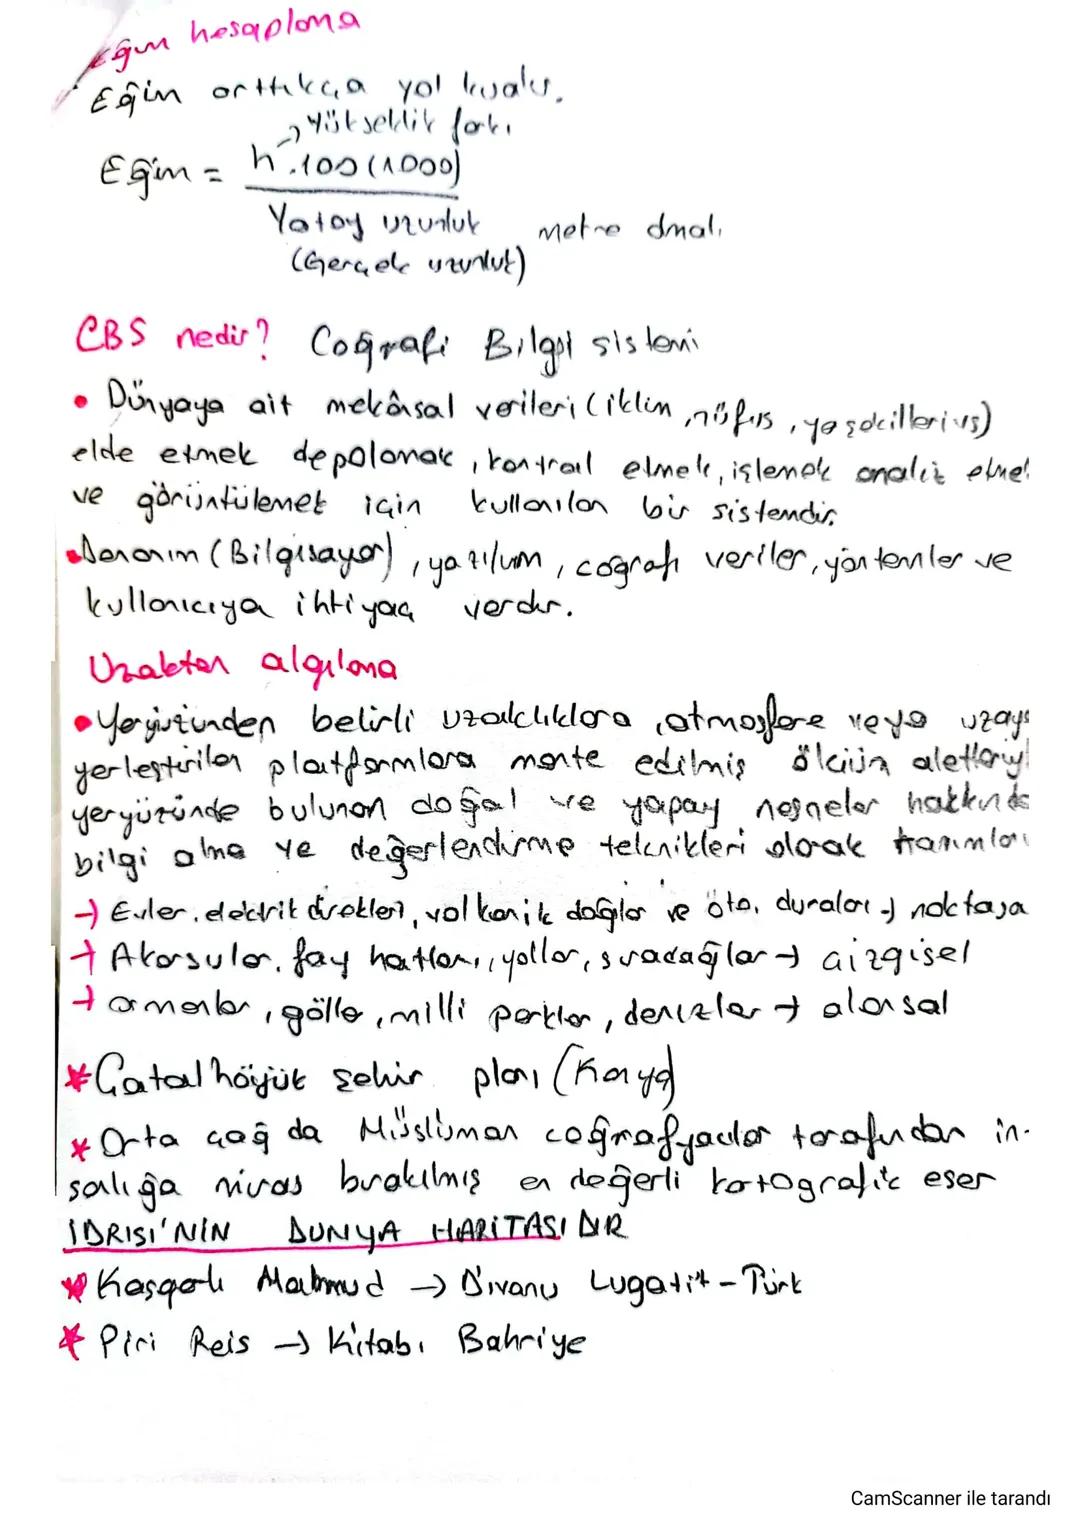 Eğim hesaplama
Eğim arttıkça yol kısalır.
→ Yükseklik farkı
Eğim = h.100 (1000)
Yatay uzunluk metre olmalı
(Gerçek uzunluk)
CBS nedir? Coğrafi Bilgi sistemi
• Dünyaya ait mekânsal verileri (iklim, nüfus, yaşekilleri vs)
elde etmek depolamak, kontrol etmek, işlemek analiz etmek
ve görüntülemek için kullanılan bir sistemdir.
• Donanım (Bilgisayar), yazılım, coğrafi veriler, yöntemler ve
kullanıcıya ihtiyaç vardır.
Uzaktan algılama
• Yeryüzünden belirli uzaklıklara, atmosfere veya uzaya
yerleştirilen platformlara monte edilmiş ölçüm aletleriyl
yeryüzünde bulunan doğal ve yapay nesneler hakkında
bilgi alma ve değerlendirme teknikleri olarak tanımlanı
→ Evler, elektrik direkleri, volkanik dağlar ve oto. duraları → noktasa
→ Akarsular, fay hatları, yollar, sıradağlar → çizgisel
→ ormanlar, göller, milli parklar, denizler → alansal
* Çatalhöyük şehir planı (Konya)
* Orta çağ da Müslüman coğrafyacılar tarafından in-
sanlığa miras bırakılmış en değerli kartografik eser
İDRİSİ'NİN DUNYA HARİTASIDIR
* Kaşgarlı Mahmud → Divanu Lugatit-Türk
* Piri Reis → Kitabı Bahriye
CamScanner ile tarandı